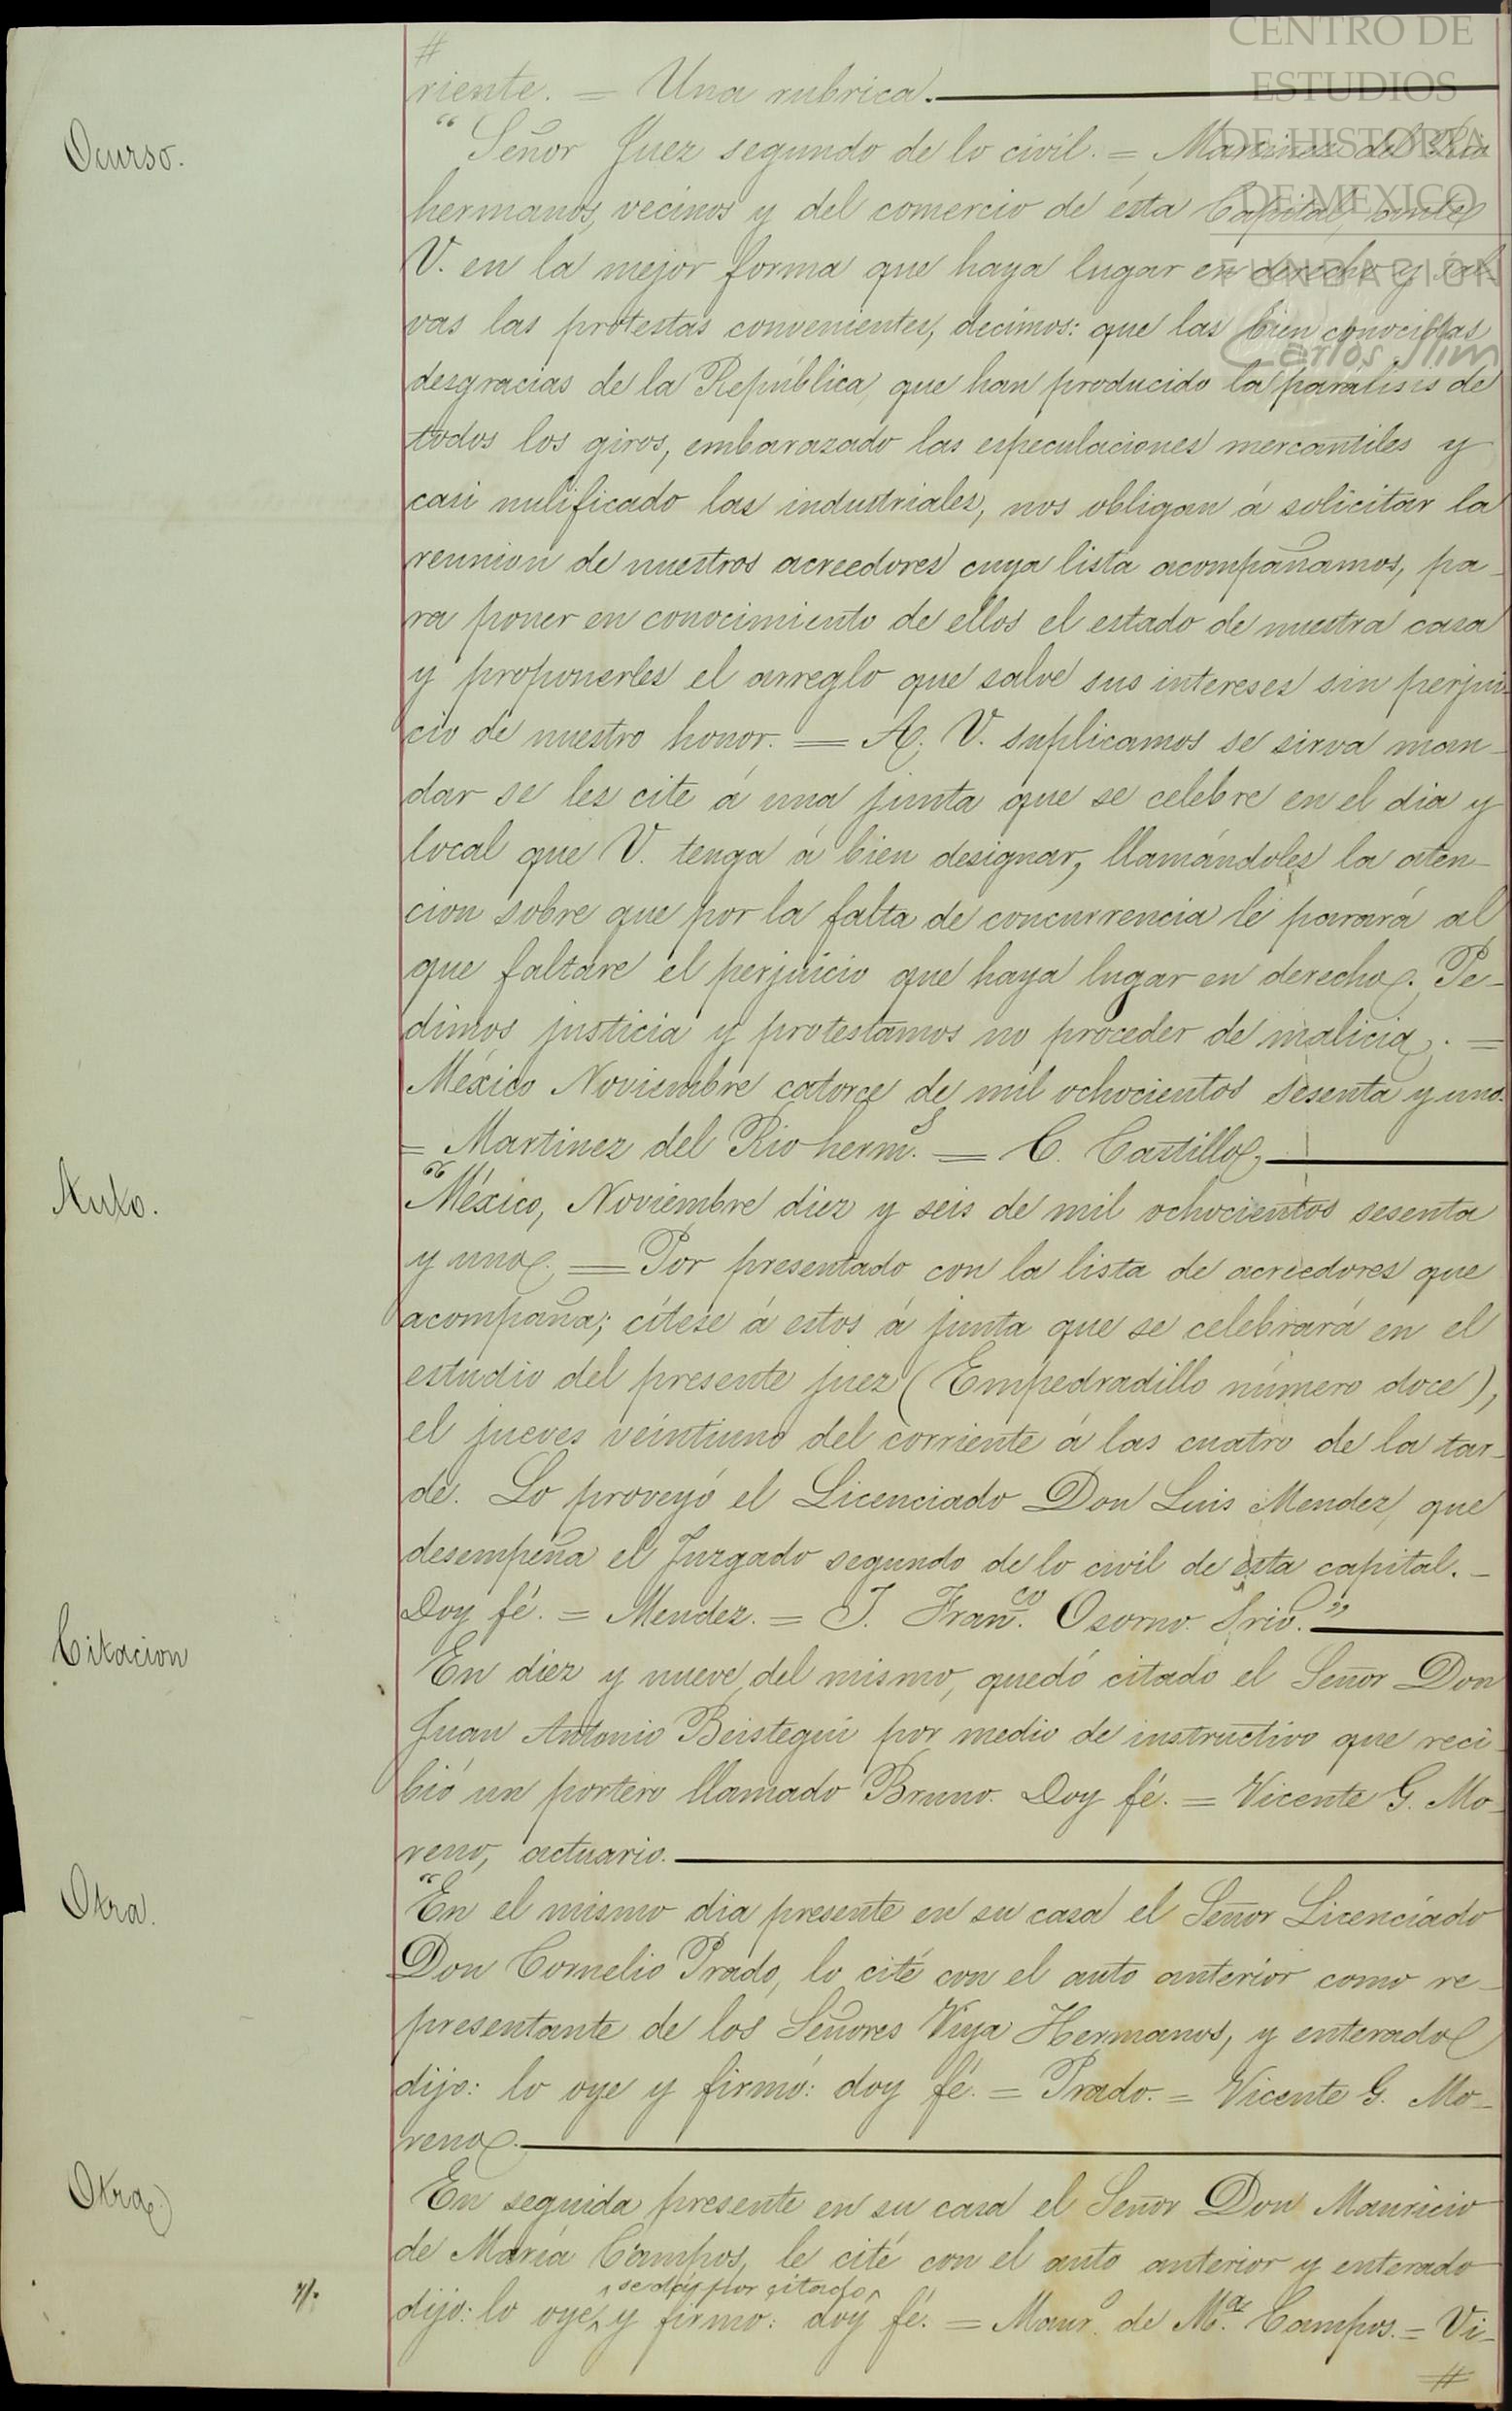 CENTRO DE
ESTUDIOS
DE HISTORIA
DE MEXICO
FUNDACIÓN
Carlos Slim
#
riente. = Una rubrica.
Ocurso.
"Señor Juez segundo de lo civil. = Martinez del Rio
hermanos, vecinos y del comercio de ésta Capital, ante
V. en la mejor forma que haya lugar en derecho y sal-
vas las protestas convenientes, decimos: que las bien conocidas
desgracias de la República, que han producido la paralisis de
todos los giros, embarazado las especulaciones mercantiles y
casi nulificado las industriales, nos obligan á solicitar la
reunion de nuestros acreedores cuya lista acompañamos, pa-
ra poner en conocimiento de ellos el estado de nuestra casa
y proponerles el arreglo que salve sus intereses sin perjui-
cio de nuestro honor. = A. V. suplicamos se sirva man-
dar se les cite á una junta que se celebre en el dia y
local que V. tenga á bien designar, llamándoles la aten-
cion sobre que por la falta de concurrencia le parará al
que faltare el perjuicio que haya lugar en derecho. Pe-
dimos justicia y protestamos no proceder de malicia. =
México Noviembre catorce de mil ochocientos sesenta y uno.
= Martinez del Rio herm.s = C. Castillo.
Auto.
"México, Noviembre diez y seis de mil ochocientos sesenta
y uno. = Por presentado con la lista de acreedores que
acompaña; cítese á estos á junta que se celebrará en el
estudio del presente juez (Empedradillo número doce),
el jueves veintiuno del corriente á las cuatro de la tar-
de. Lo proveyó el Licenciado Don Luis Mendez, que
desempeña el Juzgado segundo de lo civil de esta capital. -
Doy fé. = Mendez. = J. Fran.co Osorno. Srio."
Citacion
En diez y nueve del mismo, quedó citado el Señor Don
Juan Antonio Beistegui por medio de instructivo que reci-
bió un portero llamado Bruno. Doy fé. = Vicente G. Mo-
reno, actuario.
Otra.
"En el mismo dia presente en su casa el Señor Licenciado
Don Cornelio Prado, lo cité con el auto anterior como re-
presentante de los Señores Viya Hermanos, y enterado
dijo: lo oye y firmó: doy fé. = Prado. = Vicente G. Mo-
reno.
Otra.
En seguida presente en su casa el Señor Don Mauricio
de María Campos, le cité con el auto anterior y enterado
se dá por citado
dijo: lo oye, y firmo: doy fé. = Maur.o de M.a Campos. = Vi-
#